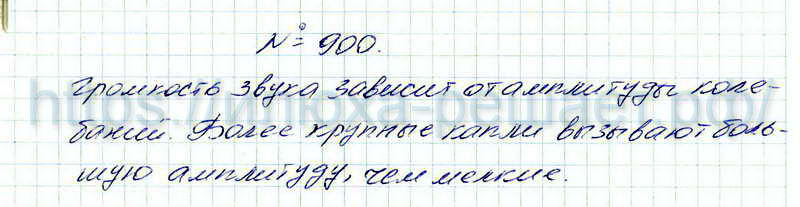 № 900.
Громкость звука зависит от амплитуды коле-
баний. Более крупные капли вызывают боль-
шую амплитуду, чем мелкие.